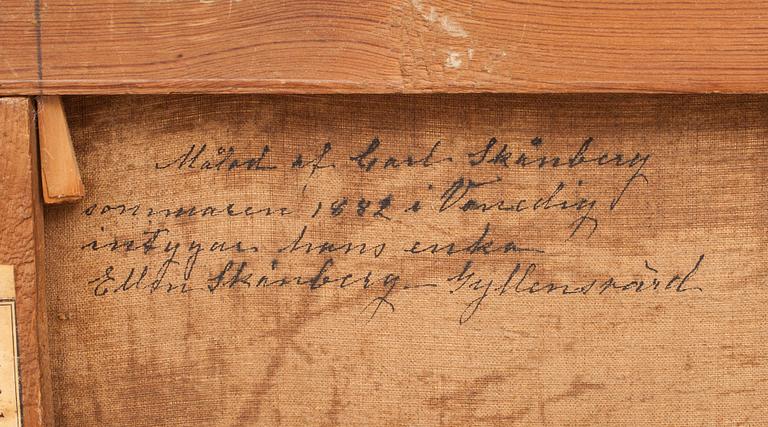 Målad af Carl Skånberg
sommaren 1882 i Venedig
intygar hans enka
Ellen Skånberg - Gyllensvärd